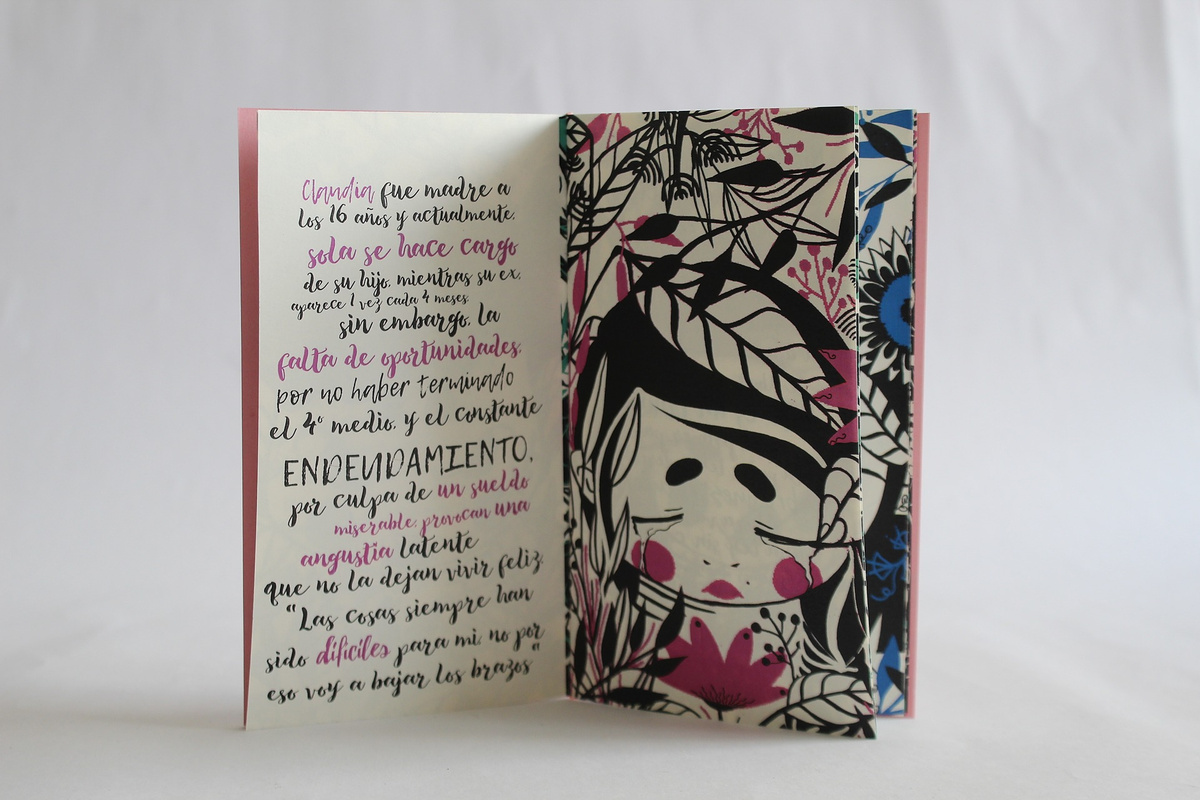 Claudia fue madre a
los 16 años y actualmente,
sola se hace cargo
de su hijo, mientras su ex,
aparece 1 vez cada 4 meses,
sin embargo, la
falta de oportunidades,
por no haber terminado
el 4º medio, y el constante
ENDEUDAMIENTO,
por culpa de un sueldo
miserable, provocan una
angustia latente
que no la dejan vivir feliz,
"Las cosas siempre han
sido difíciles para mi, no por
eso voy a bajar los brazos"